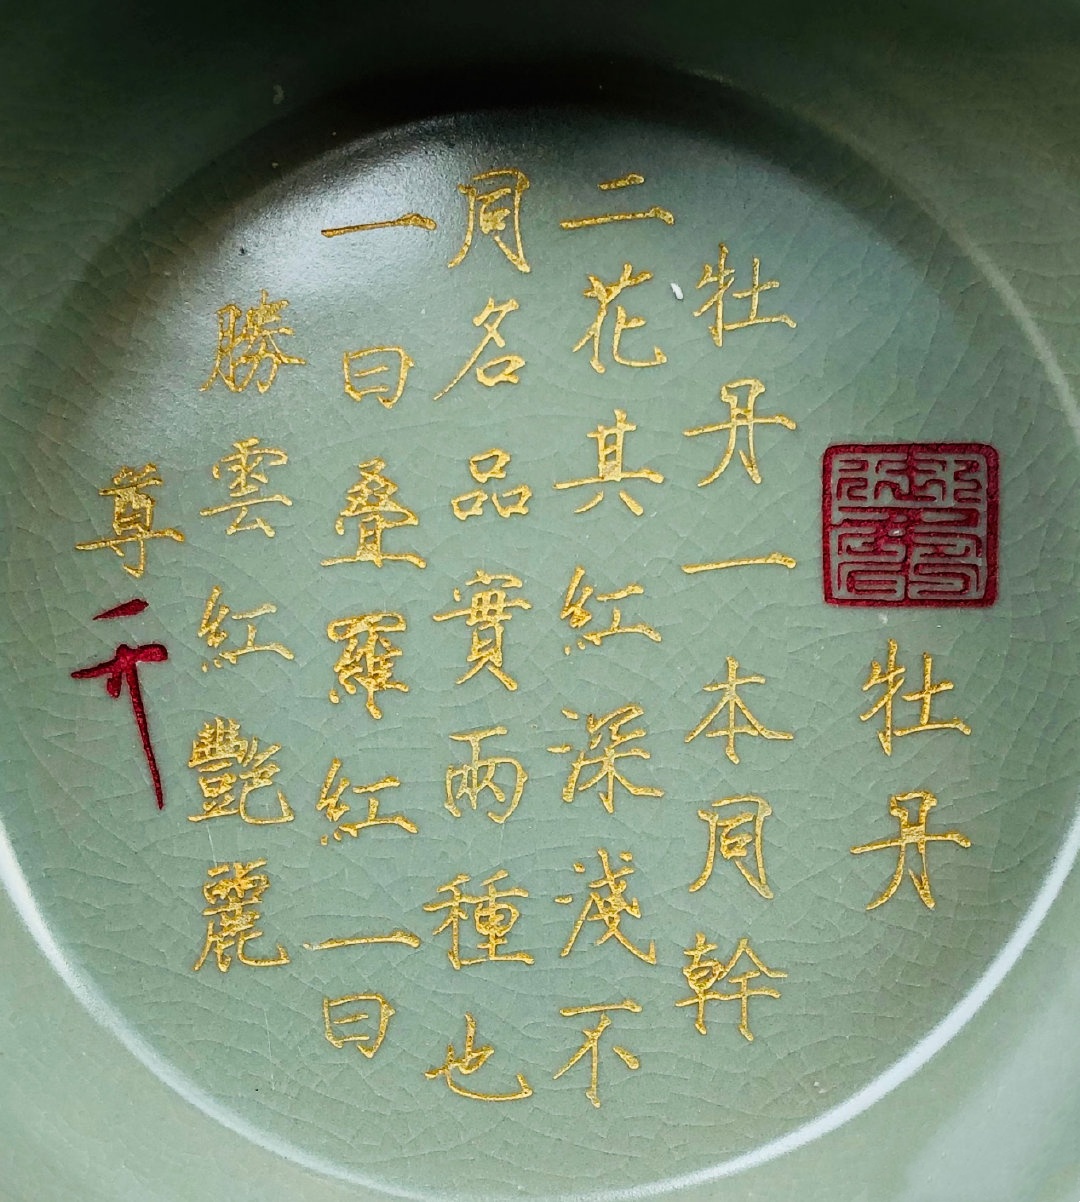 牡丹
牡丹一本同幹
二花其紅深淺不
同名品實兩種也
一曰叠羅紅一曰
勝雲紅艷麗
尊